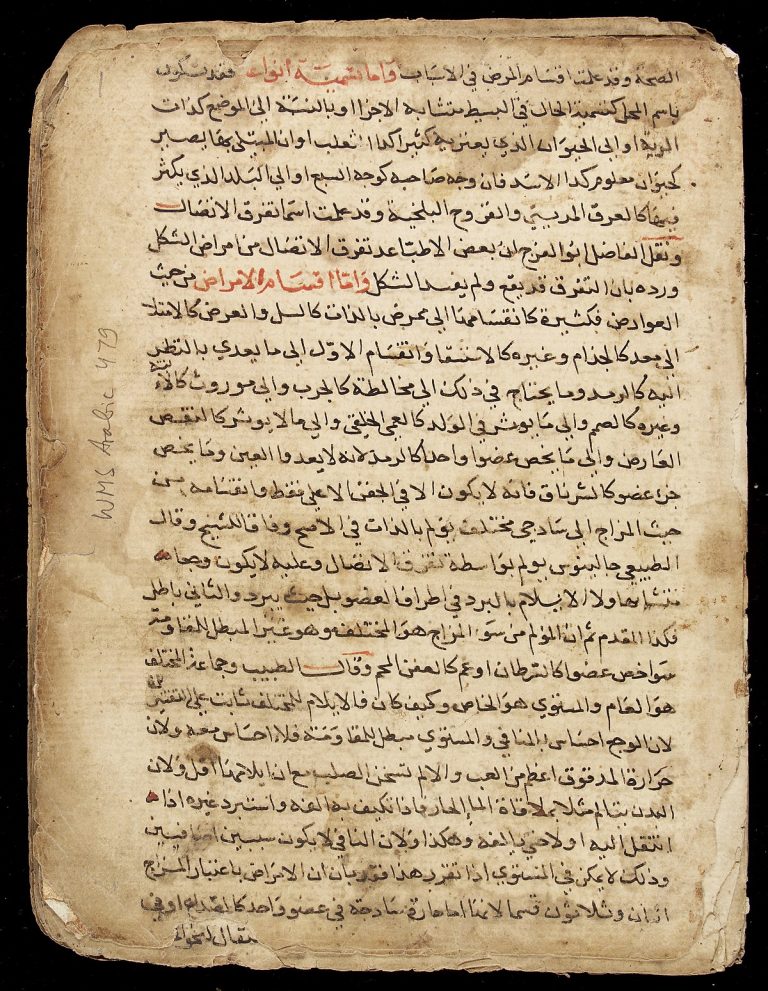 الصحة وقد علمت اقسام المرض في الاسباب واما تسمية انواعه فقد تكون
باسم المحل كتسمية الحال في البسيط متشابه الاجزا او بالنسبة الى الموضع كذات
الرية او الى الحيوان الذي يعتريه كثيرا كداا الثعلب او ان المبتلى بها يصير
كحيوان معلوم كدا الاسد فان وجه صاحبه كوجه السبع او الى البلد الذي يكثر
فيها كالعرق المديني والقروح البلخية وقد علمت اسما تفرق الاتصال
ونقل الفاضل ابو الفرج ان بعض الاطبا عد تفرق الاتصال من امراض الشكل
ورده بان التفرق قد يقع ولم يفسد الشكل واما اقسام الامراض من حيث
العوارض فكثيرة كانقسامها الى ممرض بالذات كالسل والعرض كالامتلا
الى معد كالجذام وغيره كالاستسقا وانقسام الاول الى ما يعدي بالنظر
اليه كالرمد وما يحتاج في ذلك الى مخالطة كالجرب والى موروث
وغيره كالصمم والى ما يوثر في الولد كالعمى الخلقي والى ما لا يوثر كالنقص
العارض والى ما يخص عضوا واحدا كالرمد لانه لا يعدوا العين وما يخص
جزء عضو كالشرناق فانه لا يكون الا في الجفن الاعلى فقط وانقسامه من
حيث المزاج الى ساذجي مختلف يولم بالذات في الاصح وفاقا للشيخ وقال
الطبيعي جالينوس يولم بواسطة تفرق الاتصال وعليه لا يكون وجعا
متشابها ولا الايلام بالبرد في اطراف العضو بل حيث يبرد والثاني باطل
فكذا المقدم ثم ان المولم من سو المزاج هو المختلف وهو غير المبطل للمقاومة
سوا خص عضوا كالسرطان او عم كالعفن المحم وقال الطبيب وجماعة المختلف
هو العام والمستوي هو الخاص وكيف كان فالايلام للمختلف ثابت على
لان الوجع احساس بالمنافي والمستوي مبطل للمقاومة فلا احساس معه ولان
حرارة المدقوق اعظم من الغب والا لم تسخن الصلب مع ان ايلامها اقل ولان
البدن يتالم مثلا بملاقاة الما الحار فاذا تكيف به الفه واستبرد غيره اذا
انتقل اليه اولا حتى يالفه وهكذا ولان المنافي لا يكون بين
وذلك لا يمكن في المستوي اذا تقرر هذا فقد بان ان الامراض باعتبار المزاج
اثنان وثلاثون قسما لانها اما حارة ساذجة في عضو واحد كالصداع او في
WMS Arabic 479
1